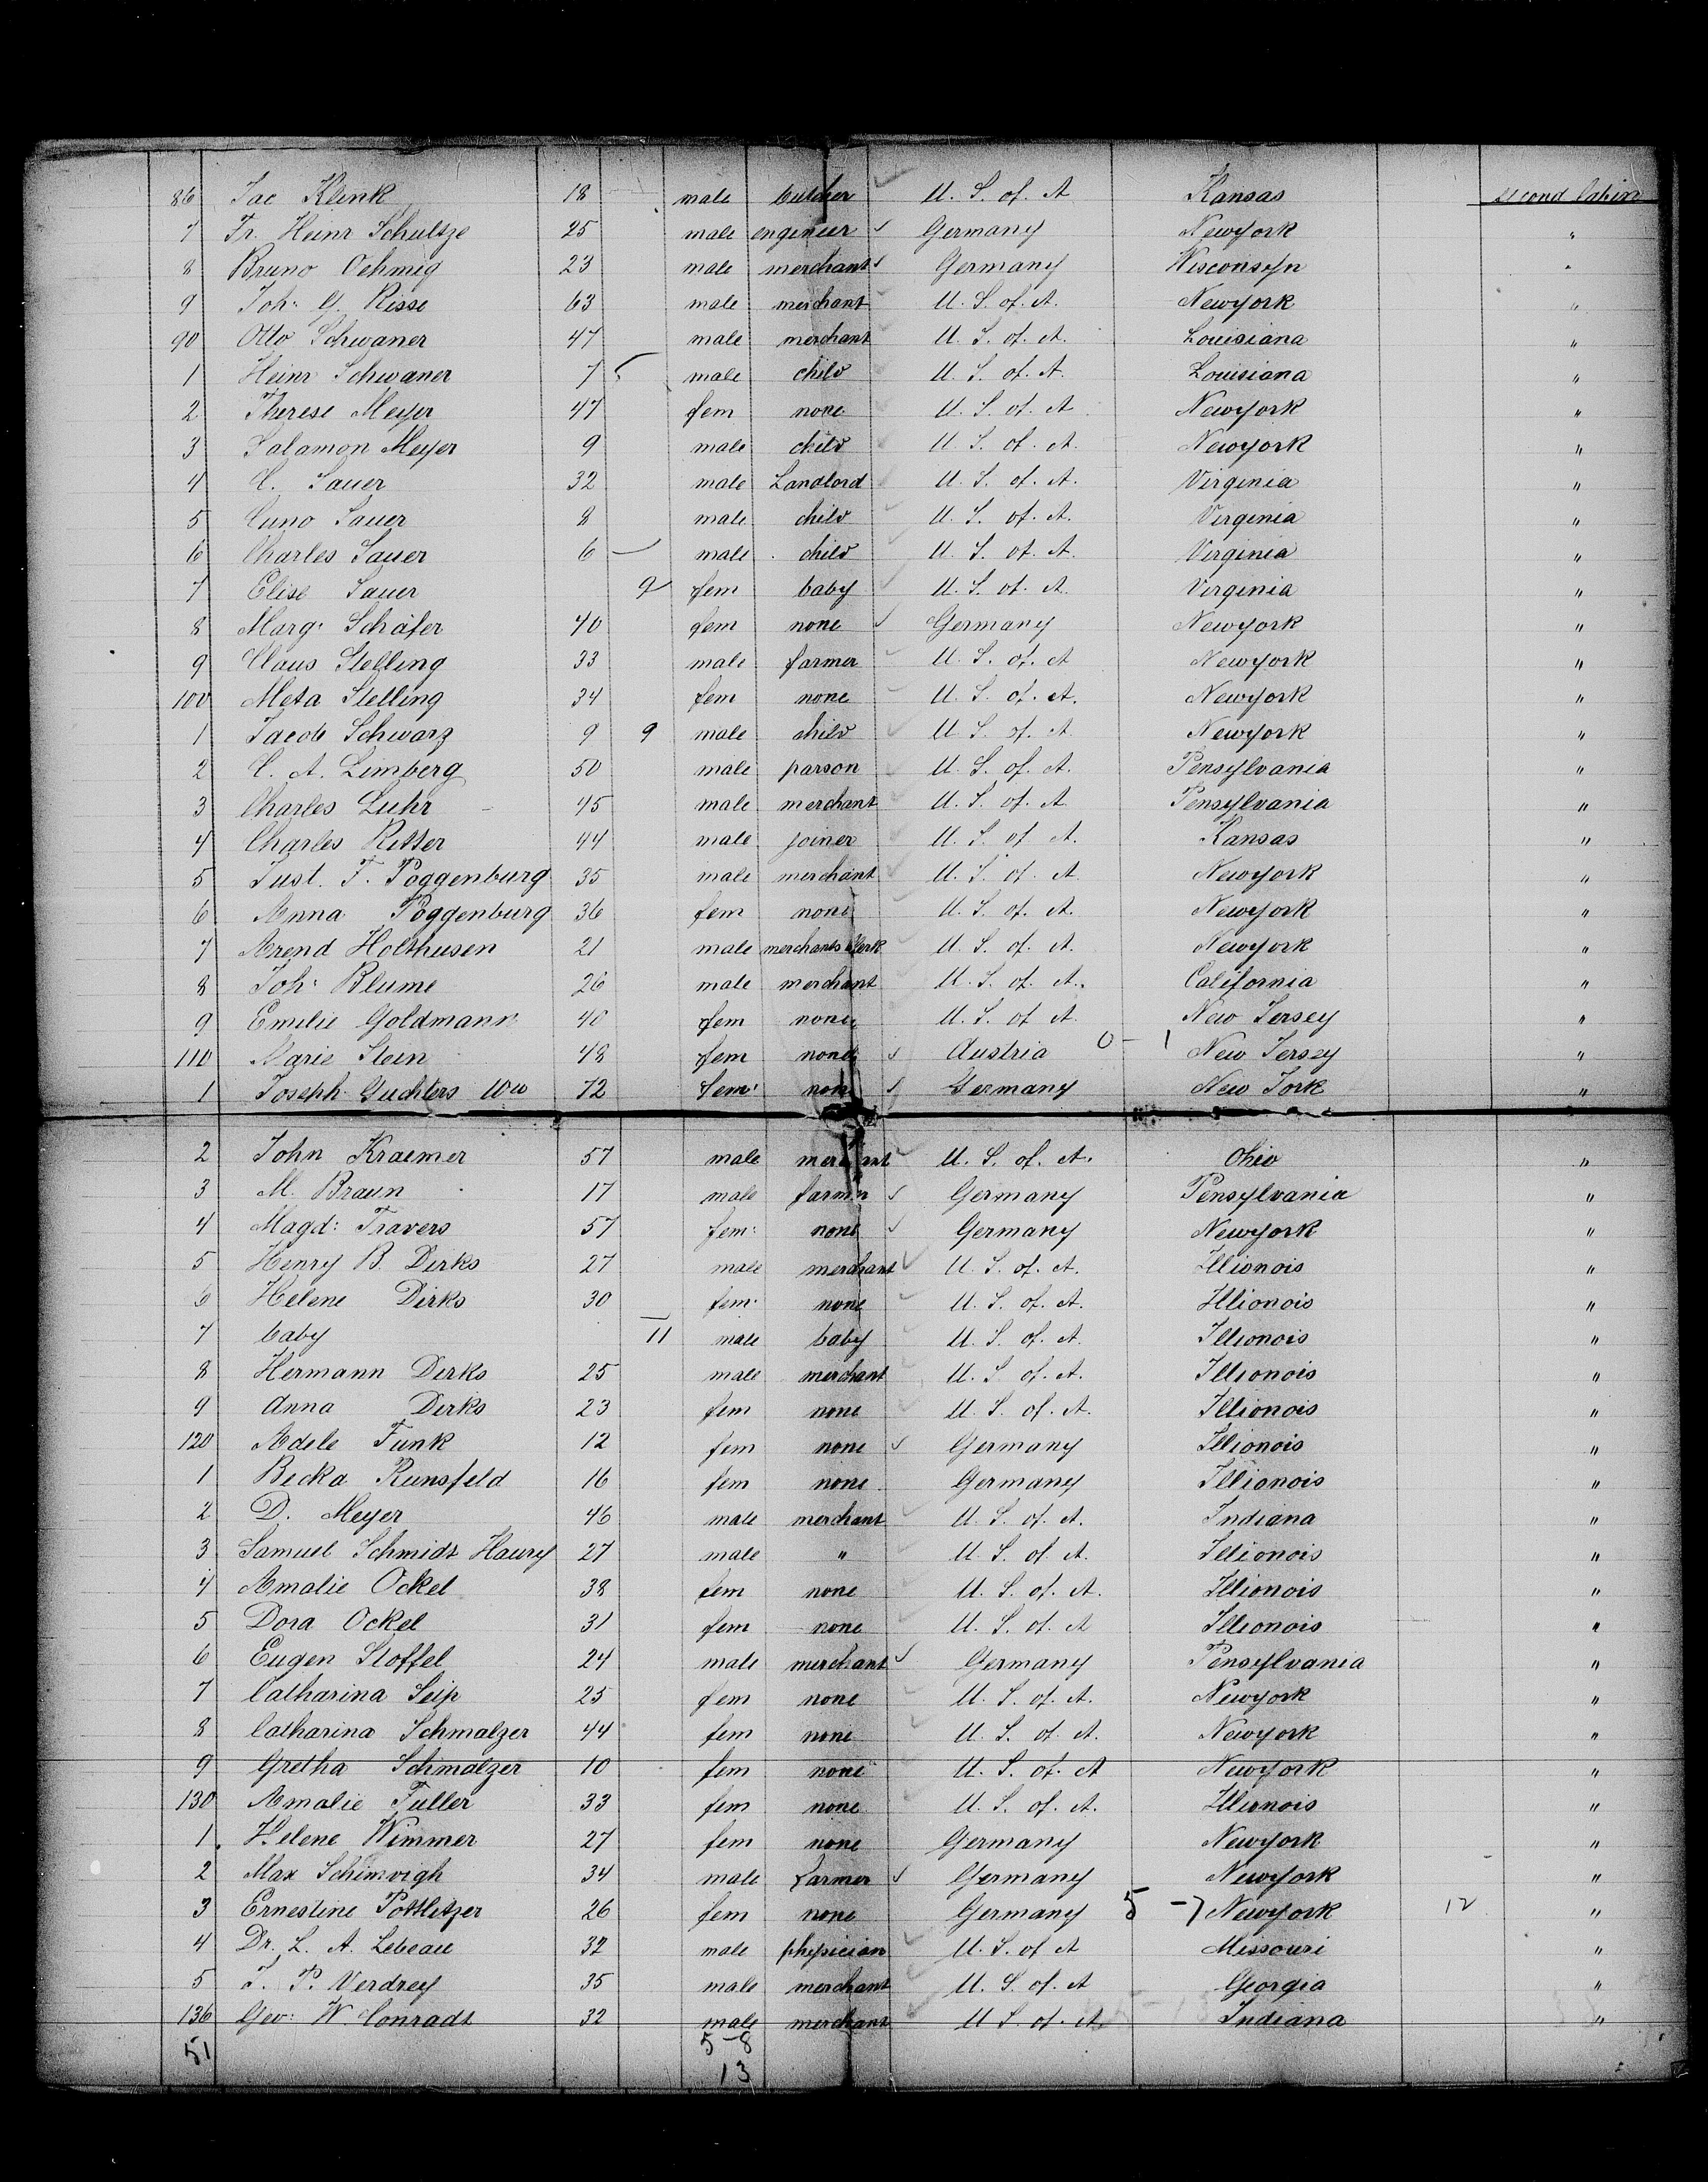 86 Jac Klink 18 male butcher U. S. of. A Kansas second Cabin
7 Fr. Heinr Schultze 25 male engineer Germany Newyork "
8 Bruno Oehmig 23 male merchant Germany Wisconsyn "
9 Joh: G. Risse 63 male merchant U. S. of. A. Newyork "
90 Otto Schwaner 47 male merchant U. S. of. A. Louisiana "
1 Heinr Schwaner 7 male child U. S. of. A. Louisiana "
2 Therese Meyer 47 fem none U. S. of. A Newyork "
3 Salamon Meyer 9 male child U. S. of. A. Newyork "
4 C. Sauer 32 male Landlord U. S. of. A. Virginia "
5 Cuno Sauer 8 male child U. S. of. A. Virginia "
6 Charles Sauer 6 male child U. S. of. A. Virginia "
7 Elise Sauer 9 fem baby U. S. of. A. Virginia "
8 Marg: Schäfer 40 fem none Germany Newyork "
9 Claus Stelling 33 male farmer U. S. of. A Newyork "
100 Meta Stelling 34 fem none U. S. of. A. Newyork "
1 Jacob Schwarz 9 9 male child U. S. of. A. Newyork "
2 C. A. Limberg 50 male parson U. S. of. A. Pensylvania "
3 Charles Luhr 45 male merchant U. S. of. A Pensylvania "
4 Charles Ritter 44 male joiner U. S. of A. Kansas "
5 Just. F. Poggenburg 35 male merchant U. S. of. A Newyork "
6 Anna Poggenburg 36 fem none U. S. of. A. Newyork "
7 Arend Holthusen 21 male merchants Klerk U. S. of. A. Newyork "
8 Joh: Blume 26 male merchant U. S. of. A. California "
9 Emilie Goldmann 40 fem none U. S. of A. New Jersey "
110 Marie Stein 48 fem none Austria 0 - 1 New Jersey "
1 Joseph Guchters Ww 72 fem: none Germany New York "
2 John Kraemer 57 male merchant U. S. of. A. Ohio "
3 M. Braun 17 male farmer Germany Pensylvania "
4 Magd: Travers 57 fem: none Germany Newyork "
5 Henry B. Dirks 27 male merchant U. S. of. A. Illionois "
6 Helene Dirks 30 fem: none U. S. of. A. Illionois "
7 baby 11 male baby U. S. of. A. Illionois "
8 Hermann Dirks 25 male merchant U. S of. A. Illionois "
9 Anna Dirks 23 fem none U. S. of. A. Illionois "
120 Adele Funk 12 fem none Germany Illionois "
1 Becka Runsfeld 16 fem none Germany Illionois "
2 D. Meyer 46 male merchant U. S. of. A. Indiana "
3 Samuel Schmidt Haury 27 male " U. S. of. A. Illionois "
4 Amalie Ockel 38 fem none U. S. of. A. Illionois "
5 Dora Ockel 31 fem none U. S. of. A Illionois "
6 Eugen Stoffel 24 male merchant Germany Pensylvania "
7 Catharina Seip 25 fem none U. S. of. A. Newyork "
8 Catharina Schmalzer 44 fem none U. S. of A. Newyork "
9 Gretha Schmalzer 10 fem none U. S. of. A Newyork "
130 Amalie Fuller 33 fem none U. S. of. A. Illionois "
1 Helene Wimmer 27 fem none Germany Newyork "
2 Max Schimvigh 34 male farmer Germany Newyork "
3 Ernestine Pottlitzer 26 fem none Germany 5 - 7 Newyork 12 "
4 Dr. L. A. Lebeau 32 male physician U. S. of A Missouri "
5 J. P. Verdrey 35 male merchant U. S. of. A Georgia "
136 Geo: W. Conradt 32 male merchant U S. of. A Indiana "
51 5-8
13